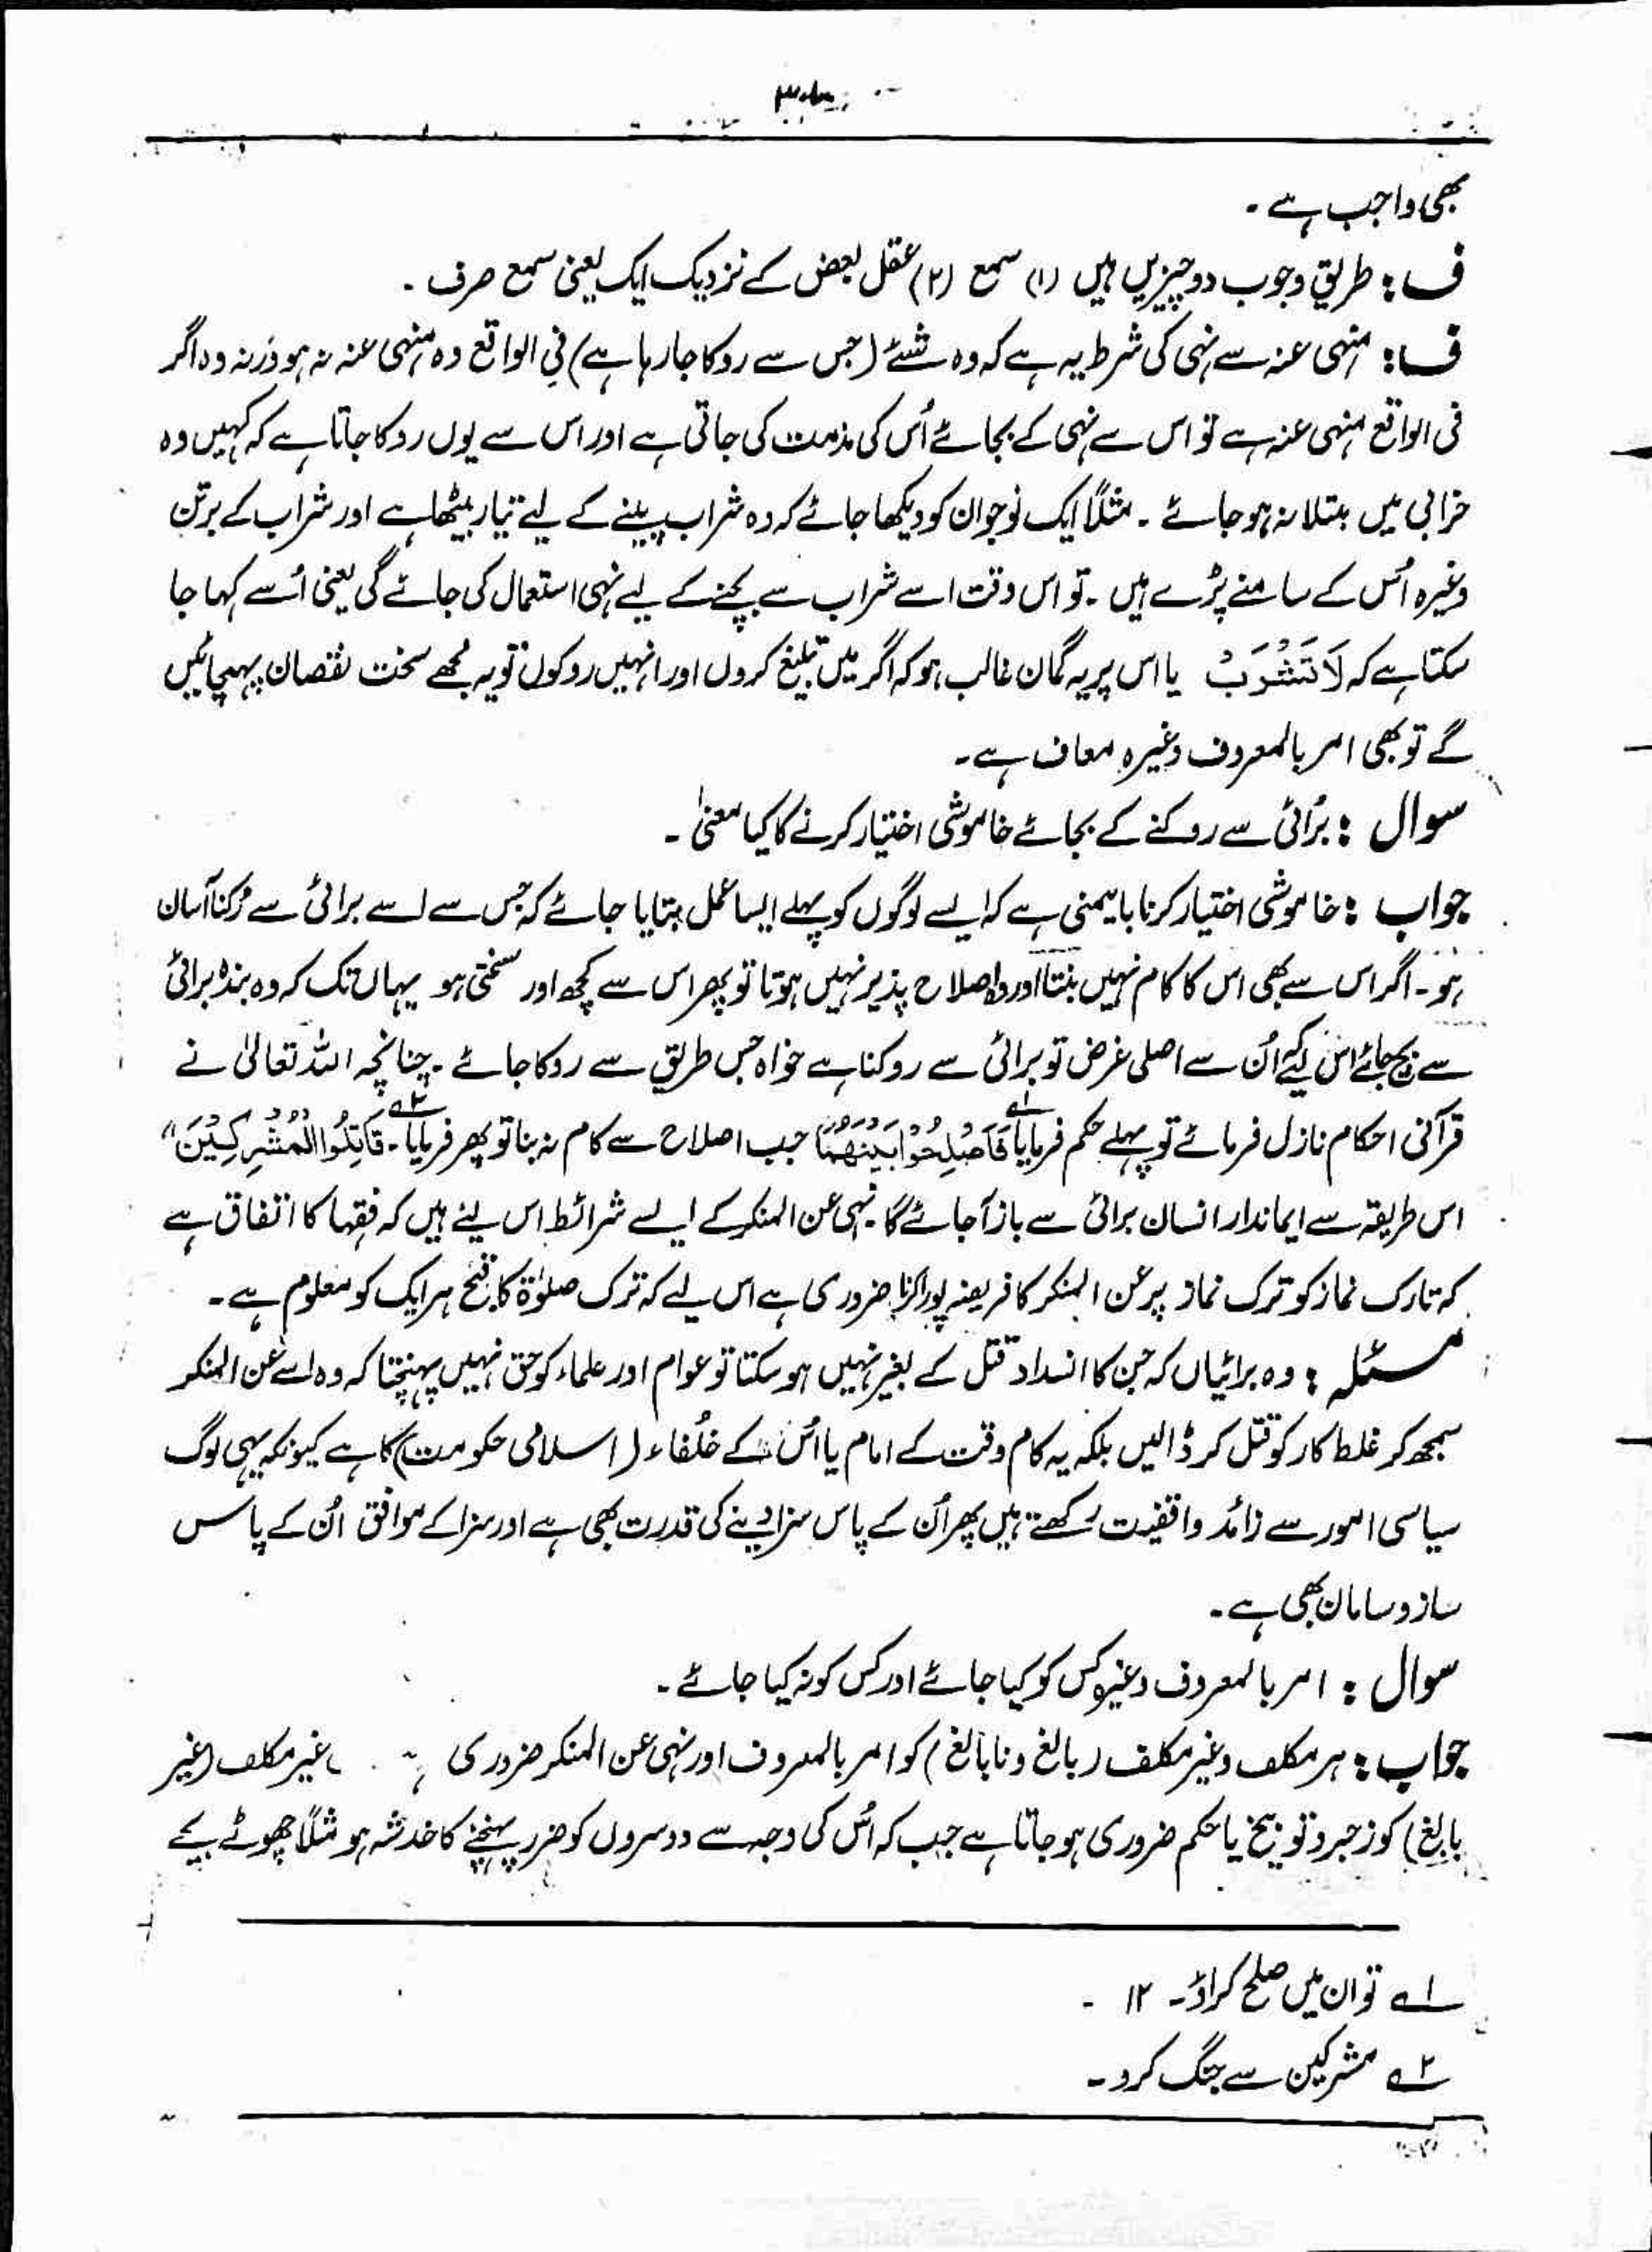 بھی واجب ہے ۔
ف : طریقِ وجوب دو چیزیں ہیں (۱) سمع (۲) عقل بعض کے نزدیک ایک یعنی سمع صرف ۔
ف : منہی عنہ سے نہی کی شرط یہ ہے کہ وہ شئے (جس سے روکا جا رہا ہے) فی الواقع وہ منہی عنہ نہ ہو ورنہ وہ اگر
فی الواقع منہی عنہ ہے تو اس سے نہی کے بجائے اُس کی مذمت کی جاتی ہے اور اس سے یوں روکا جاتا ہے کہ کہیں وہ
خرابی میں مبتلا نہ ہو جائے ۔ مثلاً ایک نوجوان کو دیکھا جائے کہ وہ شراب پینے کے لیے تیار بیٹھا ہے اور شراب کے برتن
وغیرہ اُس کے سامنے پڑے ہیں ۔ تو اس وقت اسے شراب سے بچنے کے لیے نہی استعمال کی جائے گی یعنی اُسے کہا جا
سکتا ہے کہ لَا تَشْرَبْ یا اس پر یہ گمان غالب ہو کہ اگر میں تبلیغ کروں اور انہیں روکوں تو یہ مجھے سخت نقصان پہنچائیں
گے تو بھی امر بالمعروف وغیرہ معاف ہے ۔
سوال : بُرائی سے روکنے کے بجائے خاموشی اختیار کرنے کا کیا معنیٰ ۔
جواب : خاموشی اختیار کرنا بایمعنی ہے کہ ایسے لوگوں کو پہلے ایسا عمل بتایا جائے کہ جس سے اسے برائی سے رُکنا آسان
ہو ۔ اگر اس سے بھی اس کا کام نہیں بنتا اور وہ اصلاح پذیر نہیں ہوتا تو پھر اس سے کچھ اور سختی ہو یہاں تک کہ وہ بندہ برائی
سے بچ جائے اس لیے اُن سے اصلی غرض تو برائی سے روکنا ہے خواہ جس طریق سے روکا جائے ۔ چنانچہ اللہ تعالیٰ نے
قرآنی احکام نازل فرمائے تو پہلے حکم فرمایا فَاَصْلِحُوْا بَیْنَھُمَا ۱؎ جب اصلاح سے کام نہ بنا تو پھر فرمایا ۔ قَاتِلُوا الْمُشْرِکِیْنَ ۲؎"
اس طریقہ سے ایماندار انسان برائی سے باز آ جائے گا ۔ نہی عن المنکر کے ایسے شرائط اس لیئے ہیں کہ فقہا کا اتفاق ہے
کہ تارک نماز کو ترک نماز پر عن المنکر کا فریضہ پورا کرنا ضروری ہے اس لیے کہ ترک صلوٰۃ کا قبح ہر ایک کو معلوم ہے ۔
مسئلہ : وہ برائیاں کہ جن کا انسداد قتل کے بغیر نہیں ہو سکتا تو عوام اور علماء کو حق نہیں پہنچتا کہ وہ اسے عن المنکر
سمجھ کر غلط کار کو قتل کر ڈالیں بلکہ یہ کام وقت کے امام یا اُس کے خُلفاء (اسلامی حکومت) کا ہے کیونکہ یہی لوگ
سیاسی امور سے زائد واقفیت رکھتے ہیں پھر اُن کے پاس سزا دینے کی قدرت بھی ہے اور سزا کے موافق اُن کے پاس
ساز و سامان بھی ہے ۔
سوال : امر بالمعروف وغیرہ کس کو کیا جائے اور کس کو نہ کیا جائے ۔
جواب : ہر مکلف و غیر مکلف (بالغ و نابالغ) کو امر بالمعروف اور نہی عن المنکر ضروری غیر مکلف (غیر
بالغ) کو زجر و توبیخ یا حکم ضروری ہو جاتا ہے جب کہ اُس کی وجہ سے دوسروں کو ضرر پہنچنے کا خدشہ ہو مثلاً چھوٹے بچے
۱؎ تو ان میں صلح کراؤ ۔ ۱۲ ۔
۲؎ مشرکین سے جنگ کرو ۔